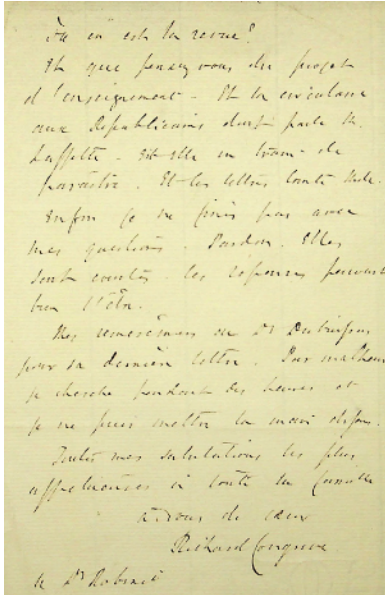 Où en est la revue?
Et que pensez vous du projet
d'enseignement - Et la circulaire
aux Republicains dont parle M.
Laffitte - Est elle en train de
paraître. Et les lettres
Enfin je ne finis pas avec
mes questions. Pardon. Elles
sont courtes. les réponses peuvent
bien l'être.
Mes remerciemens au Dr
pour sa dernière lettre. Par malheur
je cherche pendant des heures et
je ne puis mettre la main dessus.
Toutes mes salutations les plus
affectueuses à toute la famille
à vous de cœur
Richard Congreve
Dr Robinet